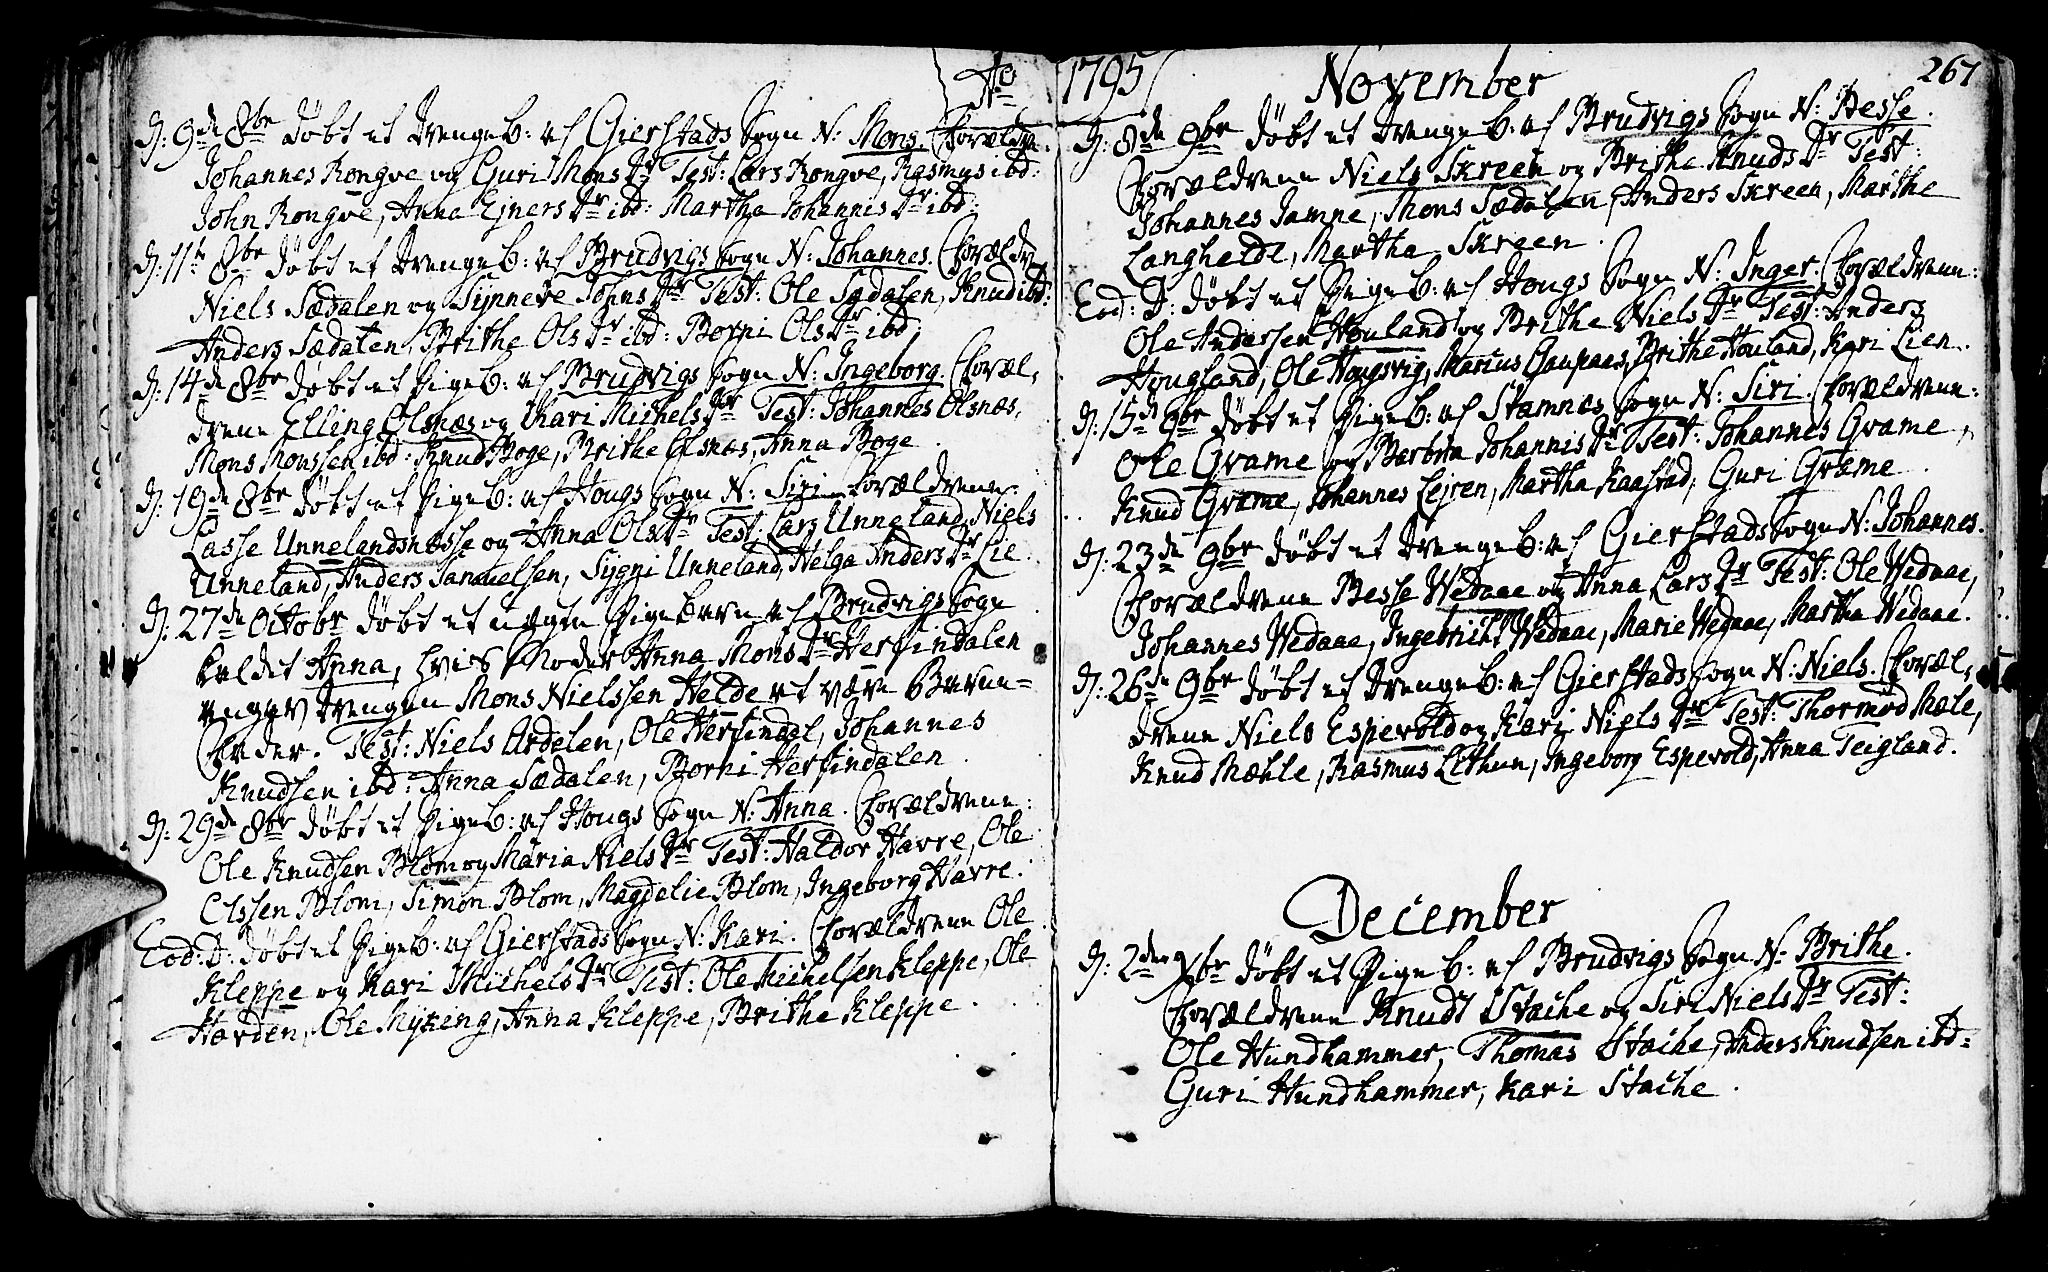 Ao
D: 9de 8br døbt et Drengeb: af Gierstads Sogn N: Mons. Forældre
Johannes Rongve og Guri Mons Dr Test: Lars Rongve, Rasmus ibd:
John Rongve, Anna Ejners Dr ibd: Martha Johannis Dr ibd:
D: 11te 8br døbt et Drengeb: af Brudvigs Sogn N: Johannes. Forældr
Niels Sædalen og Synneve Johns Dr Test: Ole Sædalen, Knud ibd:
Anders Sædalen, Brithe Ols Dr ibd: Borni Ols Dr ibd
D: 14de 8br døbt et Pigeb: af Brudvigs Sogn N: Ingeborg. Foræl,
drene Elling Olsnæs og Kari Michels Dr Test: Johannes Olsnæs,
Mons Monssen ibd: Knud Boge, Brithe Olsnæs, Anna Boge.
D: 19de 8br døbt et Pigeb: af Hougs Sogn N: Siri Forældrene:
Lasse Unnelandsnæsse og Anna Ols Dr Test: Lars Unneland, Niels
Unneland, Anders Samuelsen, Sygni Unneland, Helga Anders Dr Lie.
D: 27de Octobr døbt et uægte Pigebarn af Brudvigs Sogn
kaldet Anna, hvis Moder Anna Mons Dr Herfindalen
angav Drengen Mons Nielssen Helde at være Barne=
Fader. Test: Niels Ardalen, Ole Herfindal, Johannes
Knudsen ibd: Anna Sædalen, Borni Herfindalen.
D: 29de 8br døbt et Pigeb: af Hougs Sogn N: Anna. Forældrene:
Ole Knudsen Blom og Maria Niels Dr Test: Haldor Havre, Ole
Olssen Blom, Simon Blom, Magdelie Blom, Ingeborg Havre.
Eod: D: døbt et Pigeb: af Gierstads Sogn N: Kari. Forældrene Ole
Kleppe og Kari Michels Dr Test: Ole Michelsen Kleppe, Ole
Harden, Ole Myking, Anna Kleppe, Brithe Kleppe.
1795 November 267
D: 8de 9br døbt et Drengeb: af Brudvigs Sogn N: Besse.
Forældrene Niels Skreen og Brithe Knuds Dr Test:
Johannes Jamne, Mons Sædalen, Anders Skreen, Marthe
Langhelde, Martha Skreen.
Eod: D: døbt et Pigeb: af Hougs Sogn N: Inger. Forældrene:
Ole Andersen Houland og Brithe Niels Dr Test: Anders
Hougland, Ole Hougsvig, Marcus Gaupaas, Brithe Houland, Kari Lien.
D: 15de 9br døbt et Pigeb: af Stamnæs Sogn N: Siri. Forældrene:
Ole Qvame og Barbra Johannis Dr Test: Johannes Qvame,
Knud Qvame, Johannes Lejren, Martha Kaastad, Guri Qvame.
D: 23de 9br døbt et Drengeb: af Gierstads Sogn N: Johannes.
Forældrene Besse Wedaae og Anna Lars Dr Test: Ole Wedaae,
Johannes Wedaae, Ingebricht Wedaae, Marie Wedaae, Martha Wedaae.
D: 26de 9br døbt et Drengeb: af Gierstads Sogn N: Niels. Foræl,
drene Niels Espevold og Kari Niels Dr Test: Thormod Mæle,
Knud Mæhle, Rasmus Lethun, Ingeborg Espevold, Anna Teigland.
December
D: 2den Xbr døbt et Pigeb: af Brudvigs Sogn N: Brithe.
Forældrene Knudt Stache og Siri Niels Dr Test:
Ole Hundhammer, Thomas Stache, Anders Knudsen ibd=
Guri Hundhammer, Kari Stache.